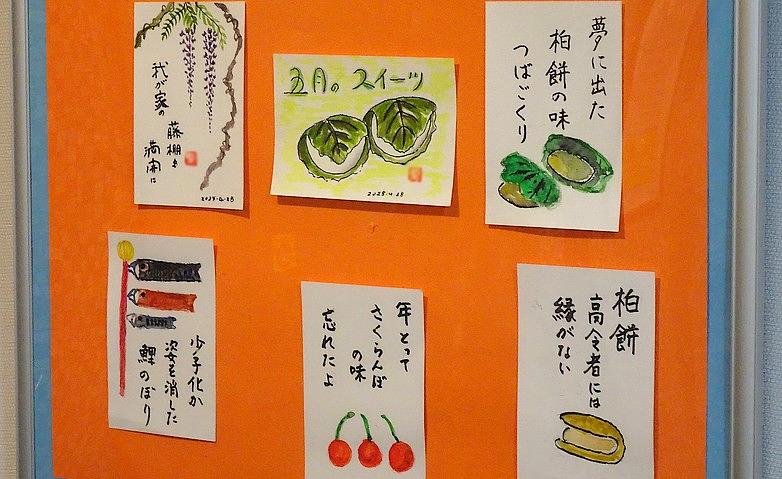 我が家の
藤棚も
満開に
2025.4.28
五月。スイーツ
2025.4.28
夢に出た
柏餅の味
つばごくり
少子化か
姿を消した
鯉のぼり
年とって
さくらんぼ
の味
忘れたよ
柏餅
高令者には
縁がない